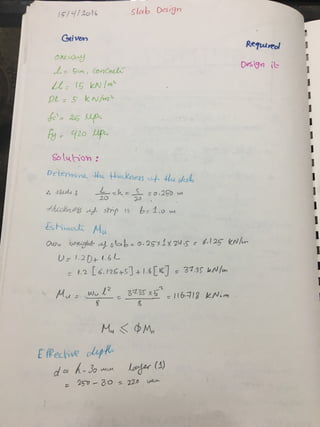 15/4/2016
Slab Design
Given
Required
oneway
Design it
L = 5m, concrete
LL = 15 kN/m²
DL = 5 kN/m²
fc' = 25 Mpa
Fy = 420 Mpa
Solution :
Determine the thickness of the slab
h = 5/20 = 0.250 m
thickness of strip is b = 1.0 m
Estimate Mu
Own weight of slab = 0.25×1×24.5 = 6.125 kN/m
U = 1.2D + 1.6L
= 1.2 [6.125+5] + 1.6[15] = 37.35 kN/m
Mu = wu l²/8 = 37.35 × 5²/8 = 116.718 kN.m
Mu ≤ ϕMn
Effective depth
d = h - 30 mm layer (1)
= 250 - 30 = 220 mm